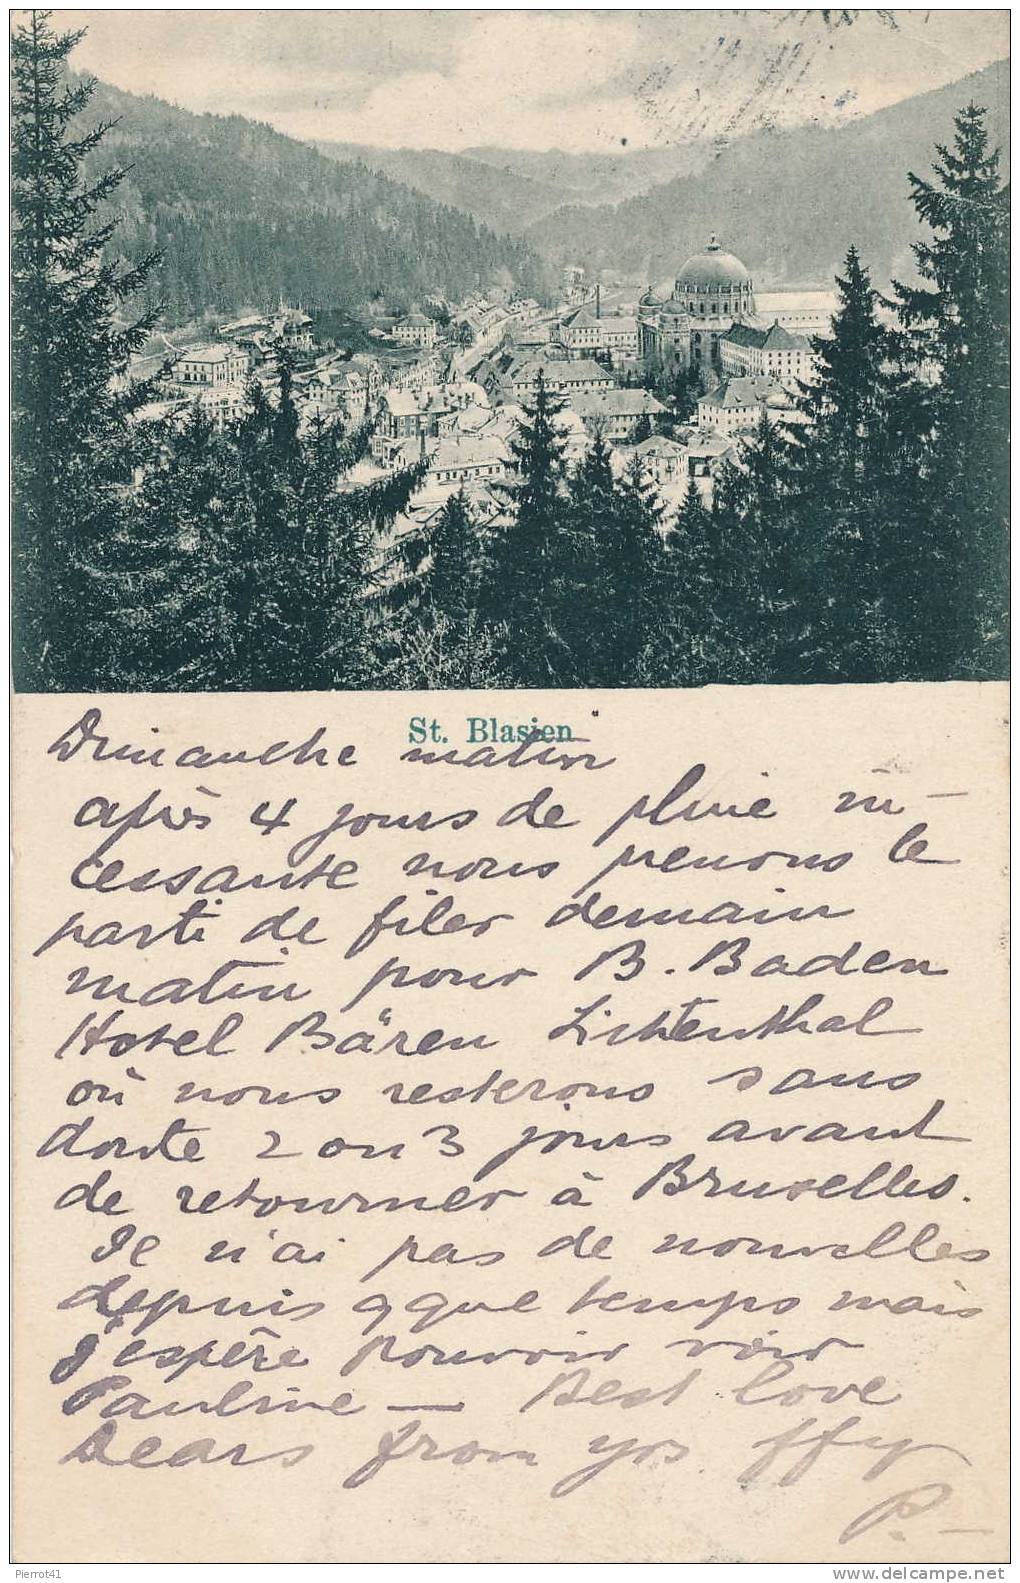 St. Blasien
Dimanche matin
après 4 jours de pluie in-
cessante nous prenons le
parti de filer demain
matin pour B. Baden
Hotel Bären Lichtenthal
où nous resterons sans
doute 2 ou 3 jours avant
de retourner à Bruxelles.
Je n'ai pas de nouvelles
depuis qque temps mais
j'espère pouvoir voir
Pauline — Best love
Dears from yrs ffly
P. —
Pierrot41
delcampe.net